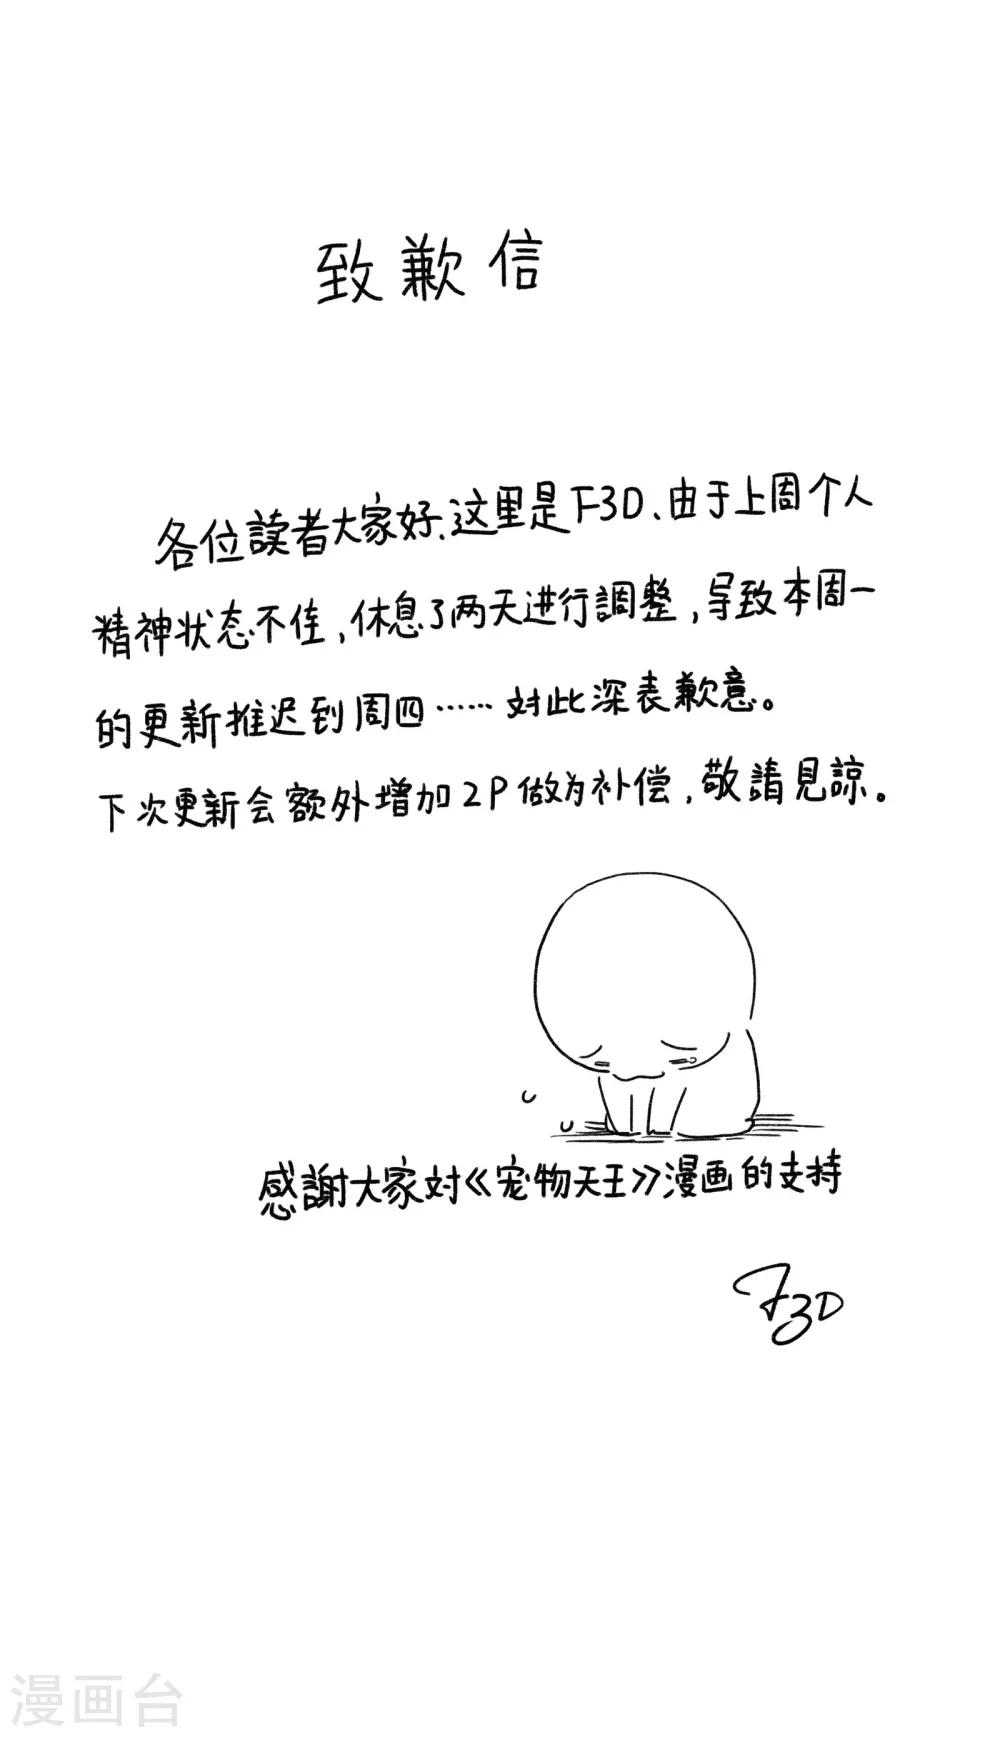 致歉信
各位読者大家好、这里是F3D、由于上周个人
精神状态不佳,休息了两天进行調整,导致本周一
的更新推迟到周四……对此深表歉意。
下次更新会额外增加2P做为补偿,敬請見諒。
感謝大家对《宠物天王》漫画的支持
F3D
漫画台